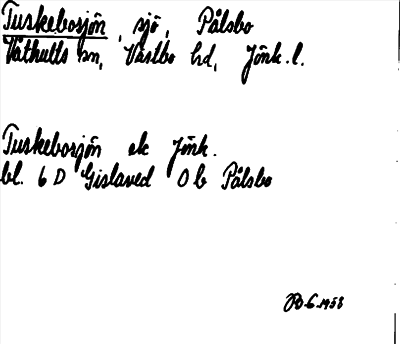 Tuskebosjön, sjö, Pålsbo
Våthults sn, Västbo hd, Jönk. l.
Tuskebosjön ek Jönk.
bl. 6 D Gislaved 0 b Pålsbo
6.1958